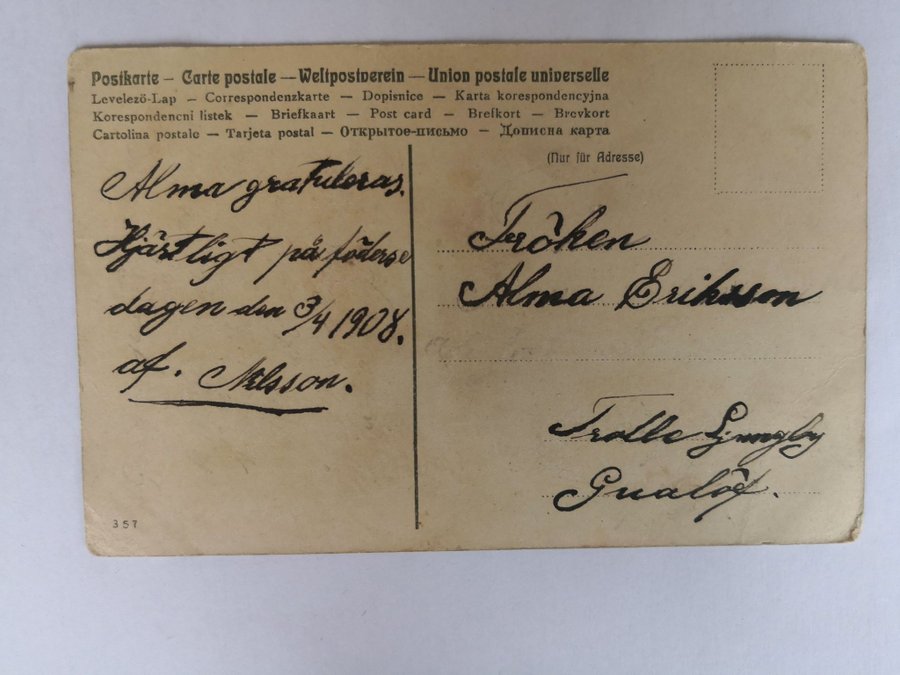 Postkarte – Carte postale — Weltpostverein – Union postale universelle
Levelezö-Lap – Correspondenzkarte – Dopisnice – Karta korespondencyjna
Korespondencni listek – Briefkaart – Post card – Brefkort – Brevkort
Cartolina postale – Tarjeta postal – Открытое-письмо – Дописна карта
(Nur für Adresse)
Alma gratuleras.
Hjärtligt på föderse
dagen den 3/4 1908.
af. Nilsson.
Fröken
Alma Eriksson
Trolle Ljungby
Gualöf.
357